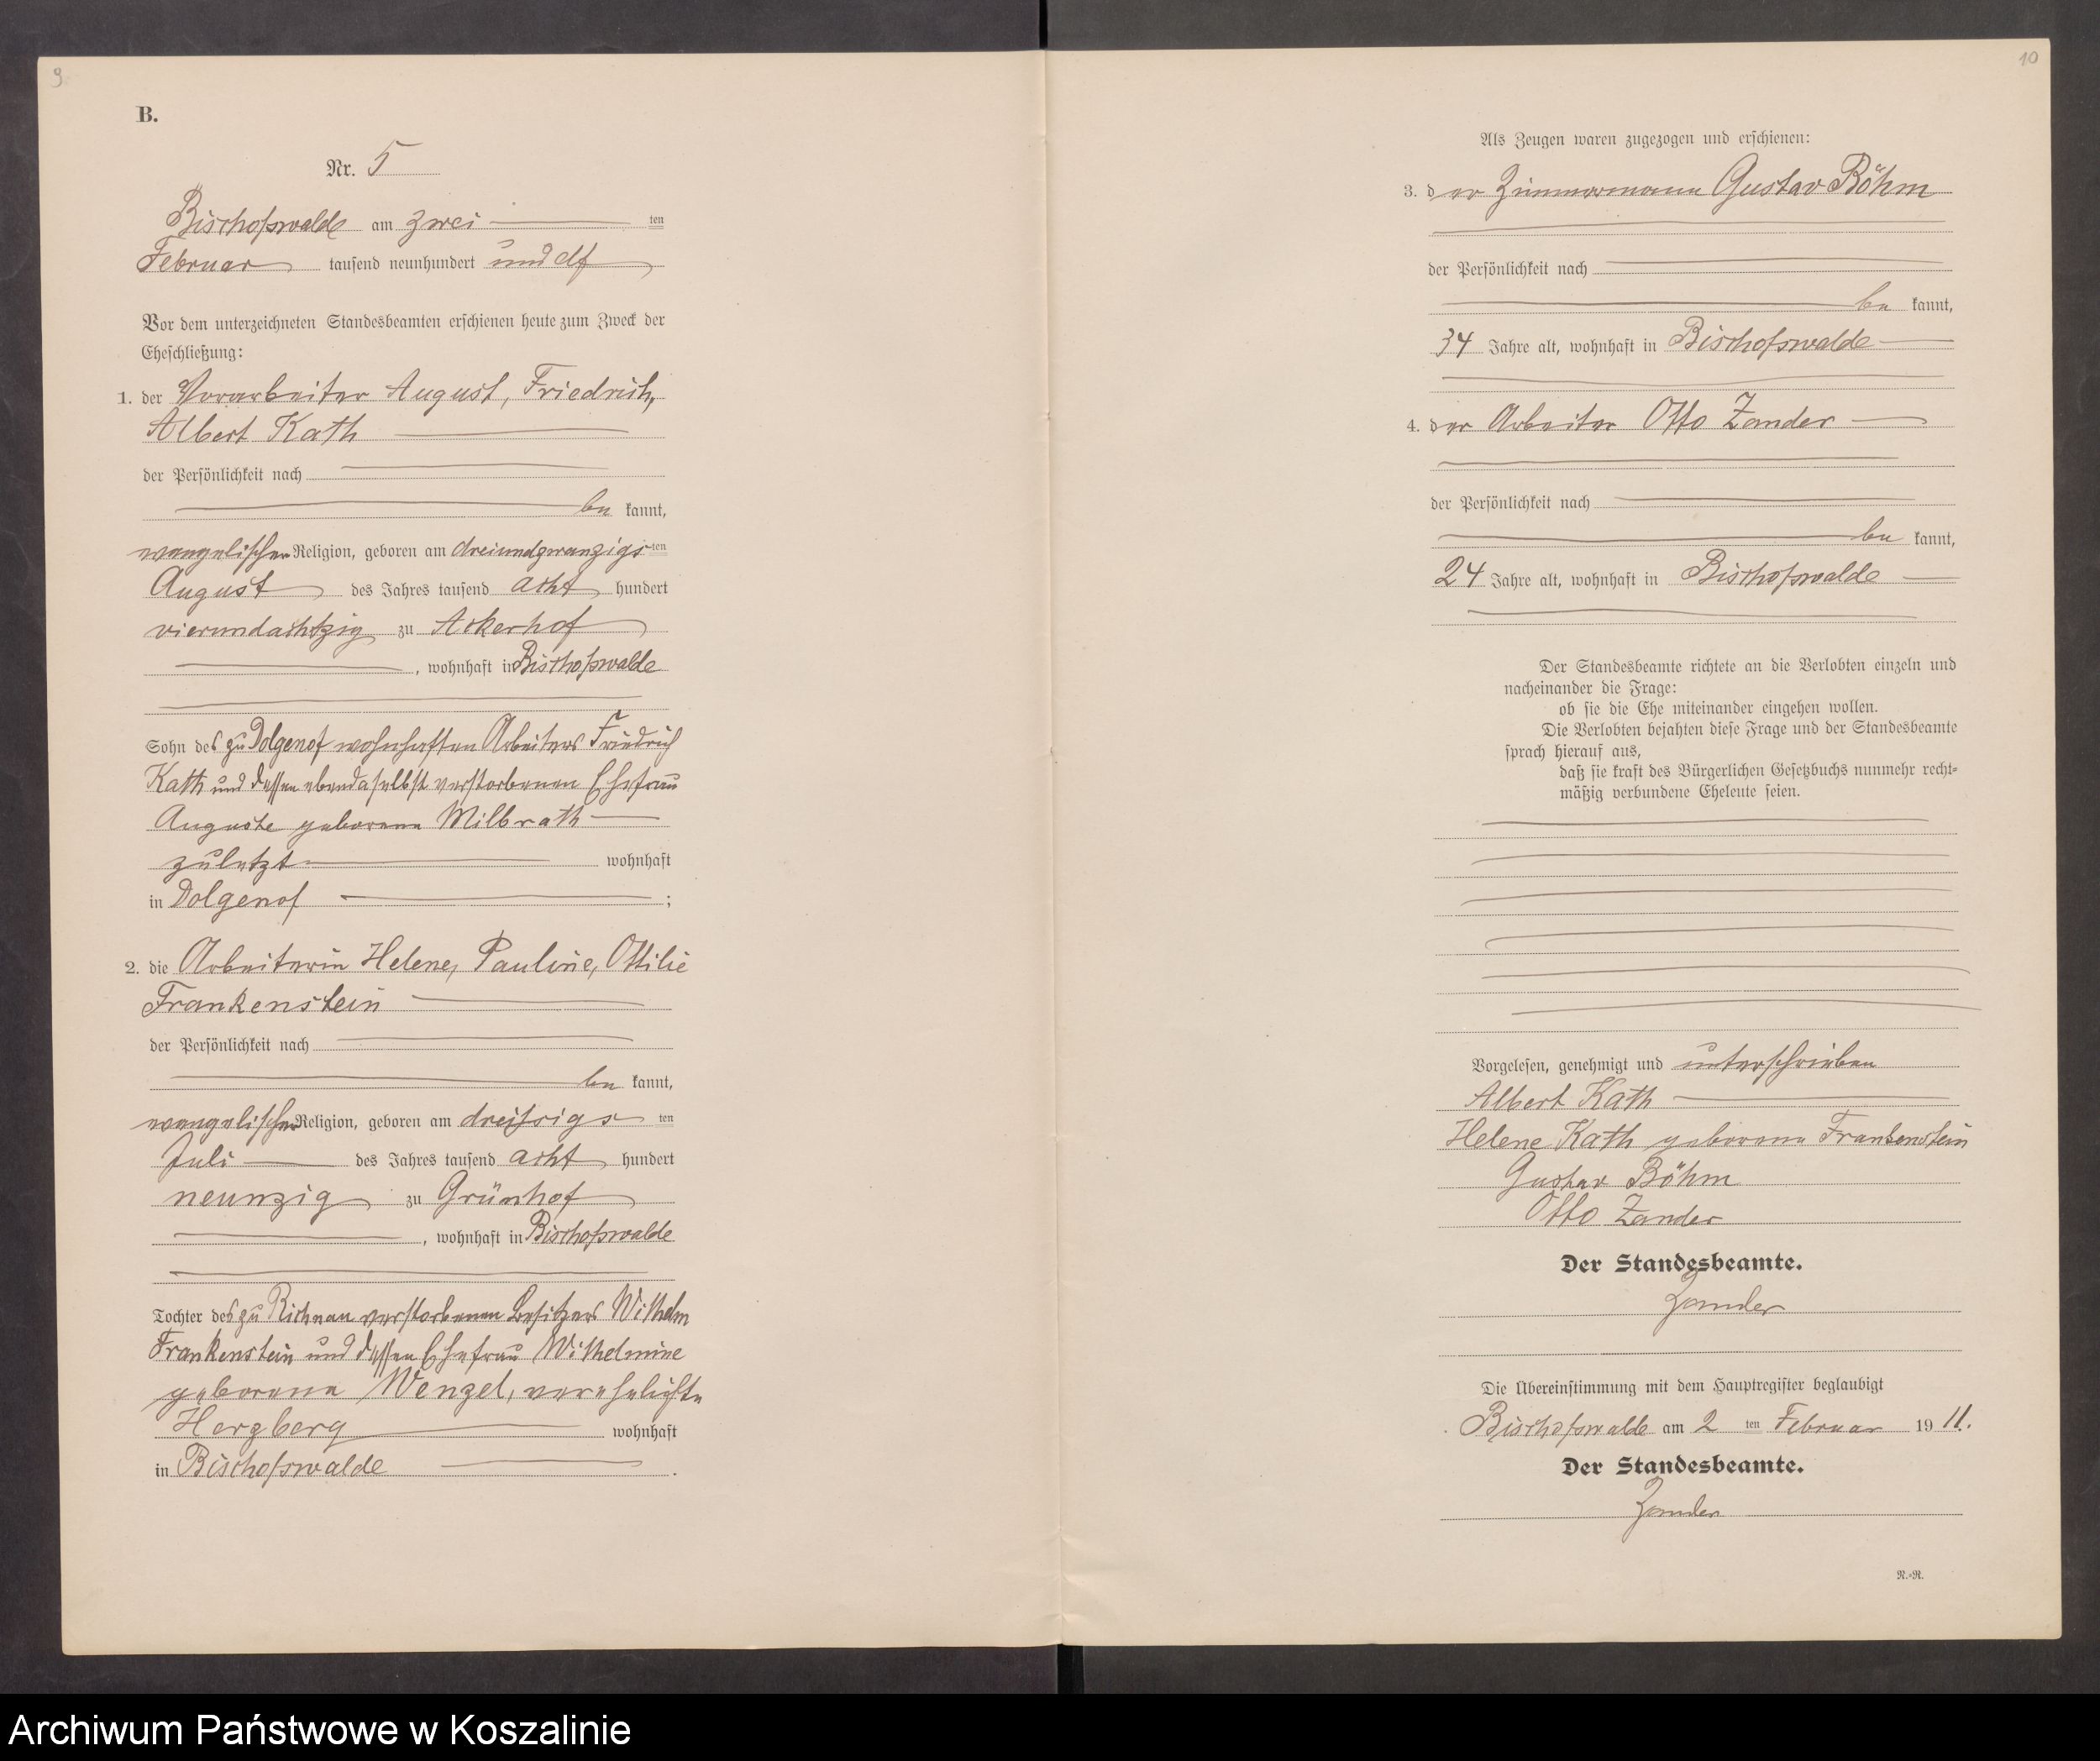 9
B.
Nr. 5
Bischofswalde am zwei ten
Februar tausend neunhundert und elf
Vor dem unterzeichneten Standesbeamten erschienen heute zum Zweck der
Eheschließung:
1. der Vorarbeiter August, Friedrich,
Albert Kath
der Persönlichkeit nach
be kannt,
evangelischer Religion, geboren am dreiundzwanzigs ten
August des Jahres tausend acht hundert
vierundachtzig zu Ackerhof
, wohnhaft in Bischofswalde
Sohn des zu Dolgenof wohnhaften Arbeiters Friedrich
Kath und dessen ebendaselbst verstorbenen Ehefrau
Auguste geborene Milbrath
zuletzt wohnhaft
in Dolgenof ;
2. die Arbeiterin Helene, Pauline, Ottilie
Frankenstein
der Persönlichkeit nach
be kannt,
evangelischer Religion, geboren am dreißigs ten
Juli des Jahres tausend acht hundert
neunzig zu Grünhof
, wohnhaft in Bischofswalde
Tochter des zu Richnau verstorbenen Besitzers Wilhelm
Frankenstein und dessen Ehefrau Wilhelmine
geborene Wenzel, verehelichte
Herzberg wohnhaft
in Bischofswalde .
10
Als Zeugen waren zugezogen und erschienen:
3. der Zimmermann Gustav Böhm
der Persönlichkeit nach
be kannt,
34 Jahre alt, wohnhaft in Bischofswalde
4. der Arbeiter Otto Zander
der Persönlichkeit nach
be kannt,
24 Jahre alt, wohnhaft in Bischofswalde
Der Standesbeamte richtete an die Verlobten einzeln und
nacheinander die Frage:
ob sie die Ehe miteinander eingehen wollen.
Die Verlobten bejahten diese Frage und der Standesbeamte
sprach hierauf aus,
daß sie kraft des Bürgerlichen Gesetzbuchs nunmehr recht-
mäßig verbundene Eheleute seien.
Vorgelesen, genehmigt und unterschrieben
Albert Kath
Helene Kath geborene Frankenstein
Gustav Böhm
Otto Zander
Der Standesbeamte.
Zander
Die Übereinstimmung mit dem Hauptregister beglaubigt
Bischofswalde am 2 ten Februar 19 11.
Der Standesbeamte.
Zander
R.-R.
Archiwum Państwowe w Koszalinie